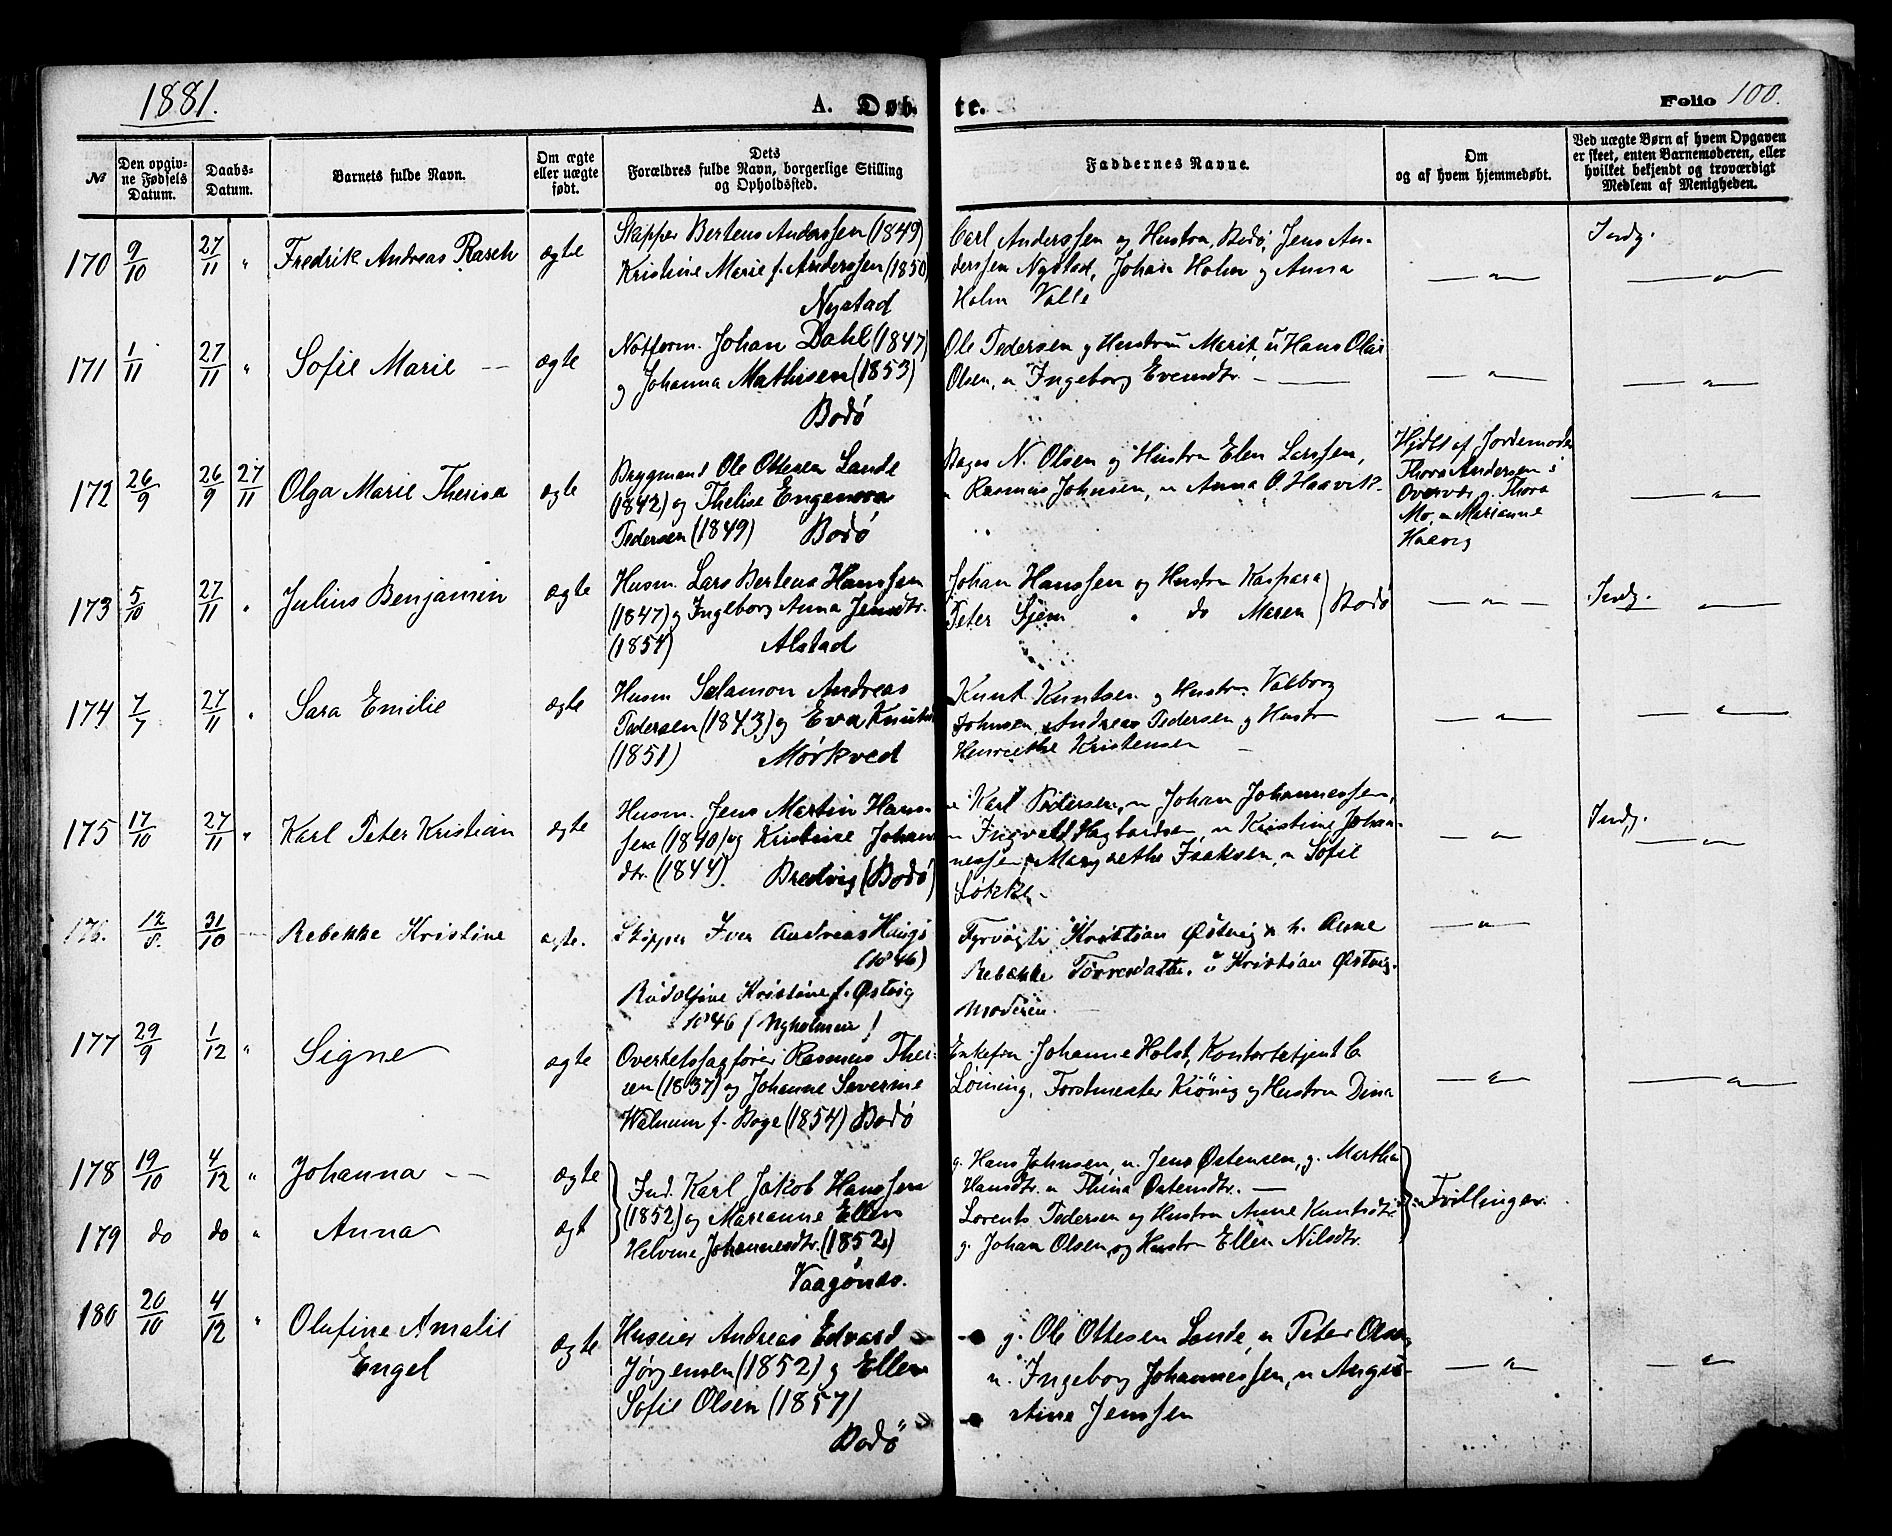 1881.
A. Døb-
te.
Folio 100.
№
Den opgiv-
ne Fødsels
Datum.
Daabs-
Datum.
Barnets fulde Navn.
Om ægte
eller uægte
født.
Dets
Forældres fulde Navn, borgerlige Stilling
og Opholdssted.
Faddernes Navne.
Om
og af hvem hjemmedøbt.
Ved uægte Børn af hvem Opgaven
er skeet, enten Barnemoderen, eller
hvilket bekjendt og troværdigt
Medlem af Menigheden.
170 9/10 27/11 " Fredrik Andreas Rasch ægte
Skipper Bertens Anderssen (1849)
Kristine Marie f. Anderssen (1850)
Nystad
Carl Anderssen og Hustru, Bodø, Jens An-
derssen Nystad, Johan Holm og Anna
Holm Valle
— " —
Indg.
— " —
171 1/11 27/11 " Sofie Marie — ægte
Notform. Johan Dahl (1847)
og Johanna Mathisen (1853)
Bodø
Ole Pedersen og Hustru Marit, u Hans Olai
Olsen, u Ingeborg Evensdtr. —
— " —
— " —
172 26/9 26/9 27/11 Olga Marie Therisa ægte
Brygmand Ole Ottesen Lande
(1842) og Thelise Enganora
Pedersen (1849) Bodø
Bager N. Olsen og Hustru Elen Larssen,
u Rasmus Johnsen, u Anna O. Haavik.
Hjdbt af Jordemoder
Thora Andersen i
Overvær g. Thora
Mo, u Marianne
Haavig
— " —
173 5/10 27/11 " Julius Benjamin ægte
Husm. Lars Bertens Hanssen
(1847) og Ingeborg Anna Jensdtr.
(1854) Alstad
Johan Hanssen og Hustru Kaspara
Peter Sjem " do Maren } Bodø
— " —
Indg. — " —
174 7/7 27/11 " Sara Emilie ægte
Husm Salamon Andreas
Pedersen (1843) og Eva Knutsd
(1851) Mørkved
Knut Knutsen og Hustru Valborg
Johnsen, Andreas Pedersen og Hustru
Henriethe Kristensen —
— " —
— " —
175 17/10 27/11 " Karl Peter Kristian ægte
Husm. Jens Martin Hans-
sen (1840) og Kristine Johans
dtr. (1844). Bredvig (Bodø)
u Karl Pedersen, u Johan Johannessen,
u Ingvald Hagbartsen, u Kristine Johan-
nessen, Margrethe Isaksen, u Sofie
Løkke —
— " —
Indg.
— " —
176. 12/8. 31/10 — Rebekke Kristine ægte.
Skipper Iver Andreas
(1846)
Rudolfine Kristine f. Østvig
1846 (Nyholmen)
Fyrvogter Kristian Østvig & h. Anne
Rebekke Torresdatter. u Kristian Østvig.
Moderen. —
— " —
177 29/9 1/12 " Signe ægte
Overretssagfører Rasmus Thei-
sen (1837) og Johanne Severine
Walnum f. Boye (1854) Bodø
Enkefru Johanne Holst, Kontorbetjent C.
Løining, Forstmester Kiönig og Hustru Dina
— " —
— " —
178 19/10 4/12 " Johanna — ægte
179 do do " Anna ægt
Ind. Karl Jakob Hanssen
(1852) og Marianne Ellen
Helvine Johannesdtr. (1852)
Vaagönes.
g. Hans Johnsen, u. Jens Östensen, g. Martha
Hansdtr. u Thina Östensdtr. —
Lorents Pedersen og Hustru Anne Knutsdtr.
g. Johan Olsen og Hustru Ellen Nilsdtr.
Tvillinger.
180 20/10 4/12 " Olufine Amalie
Engel ægte
Huseier Andreas Edvard
Jørgensen (1852) og Ellen
Sofie Olsen (1857)
Bodö
g. Ole Ottesen Lande, u Peter Olsen
u. Ingeborg Johannessen, u Angu-
stine Jenssen
— " —
— " —